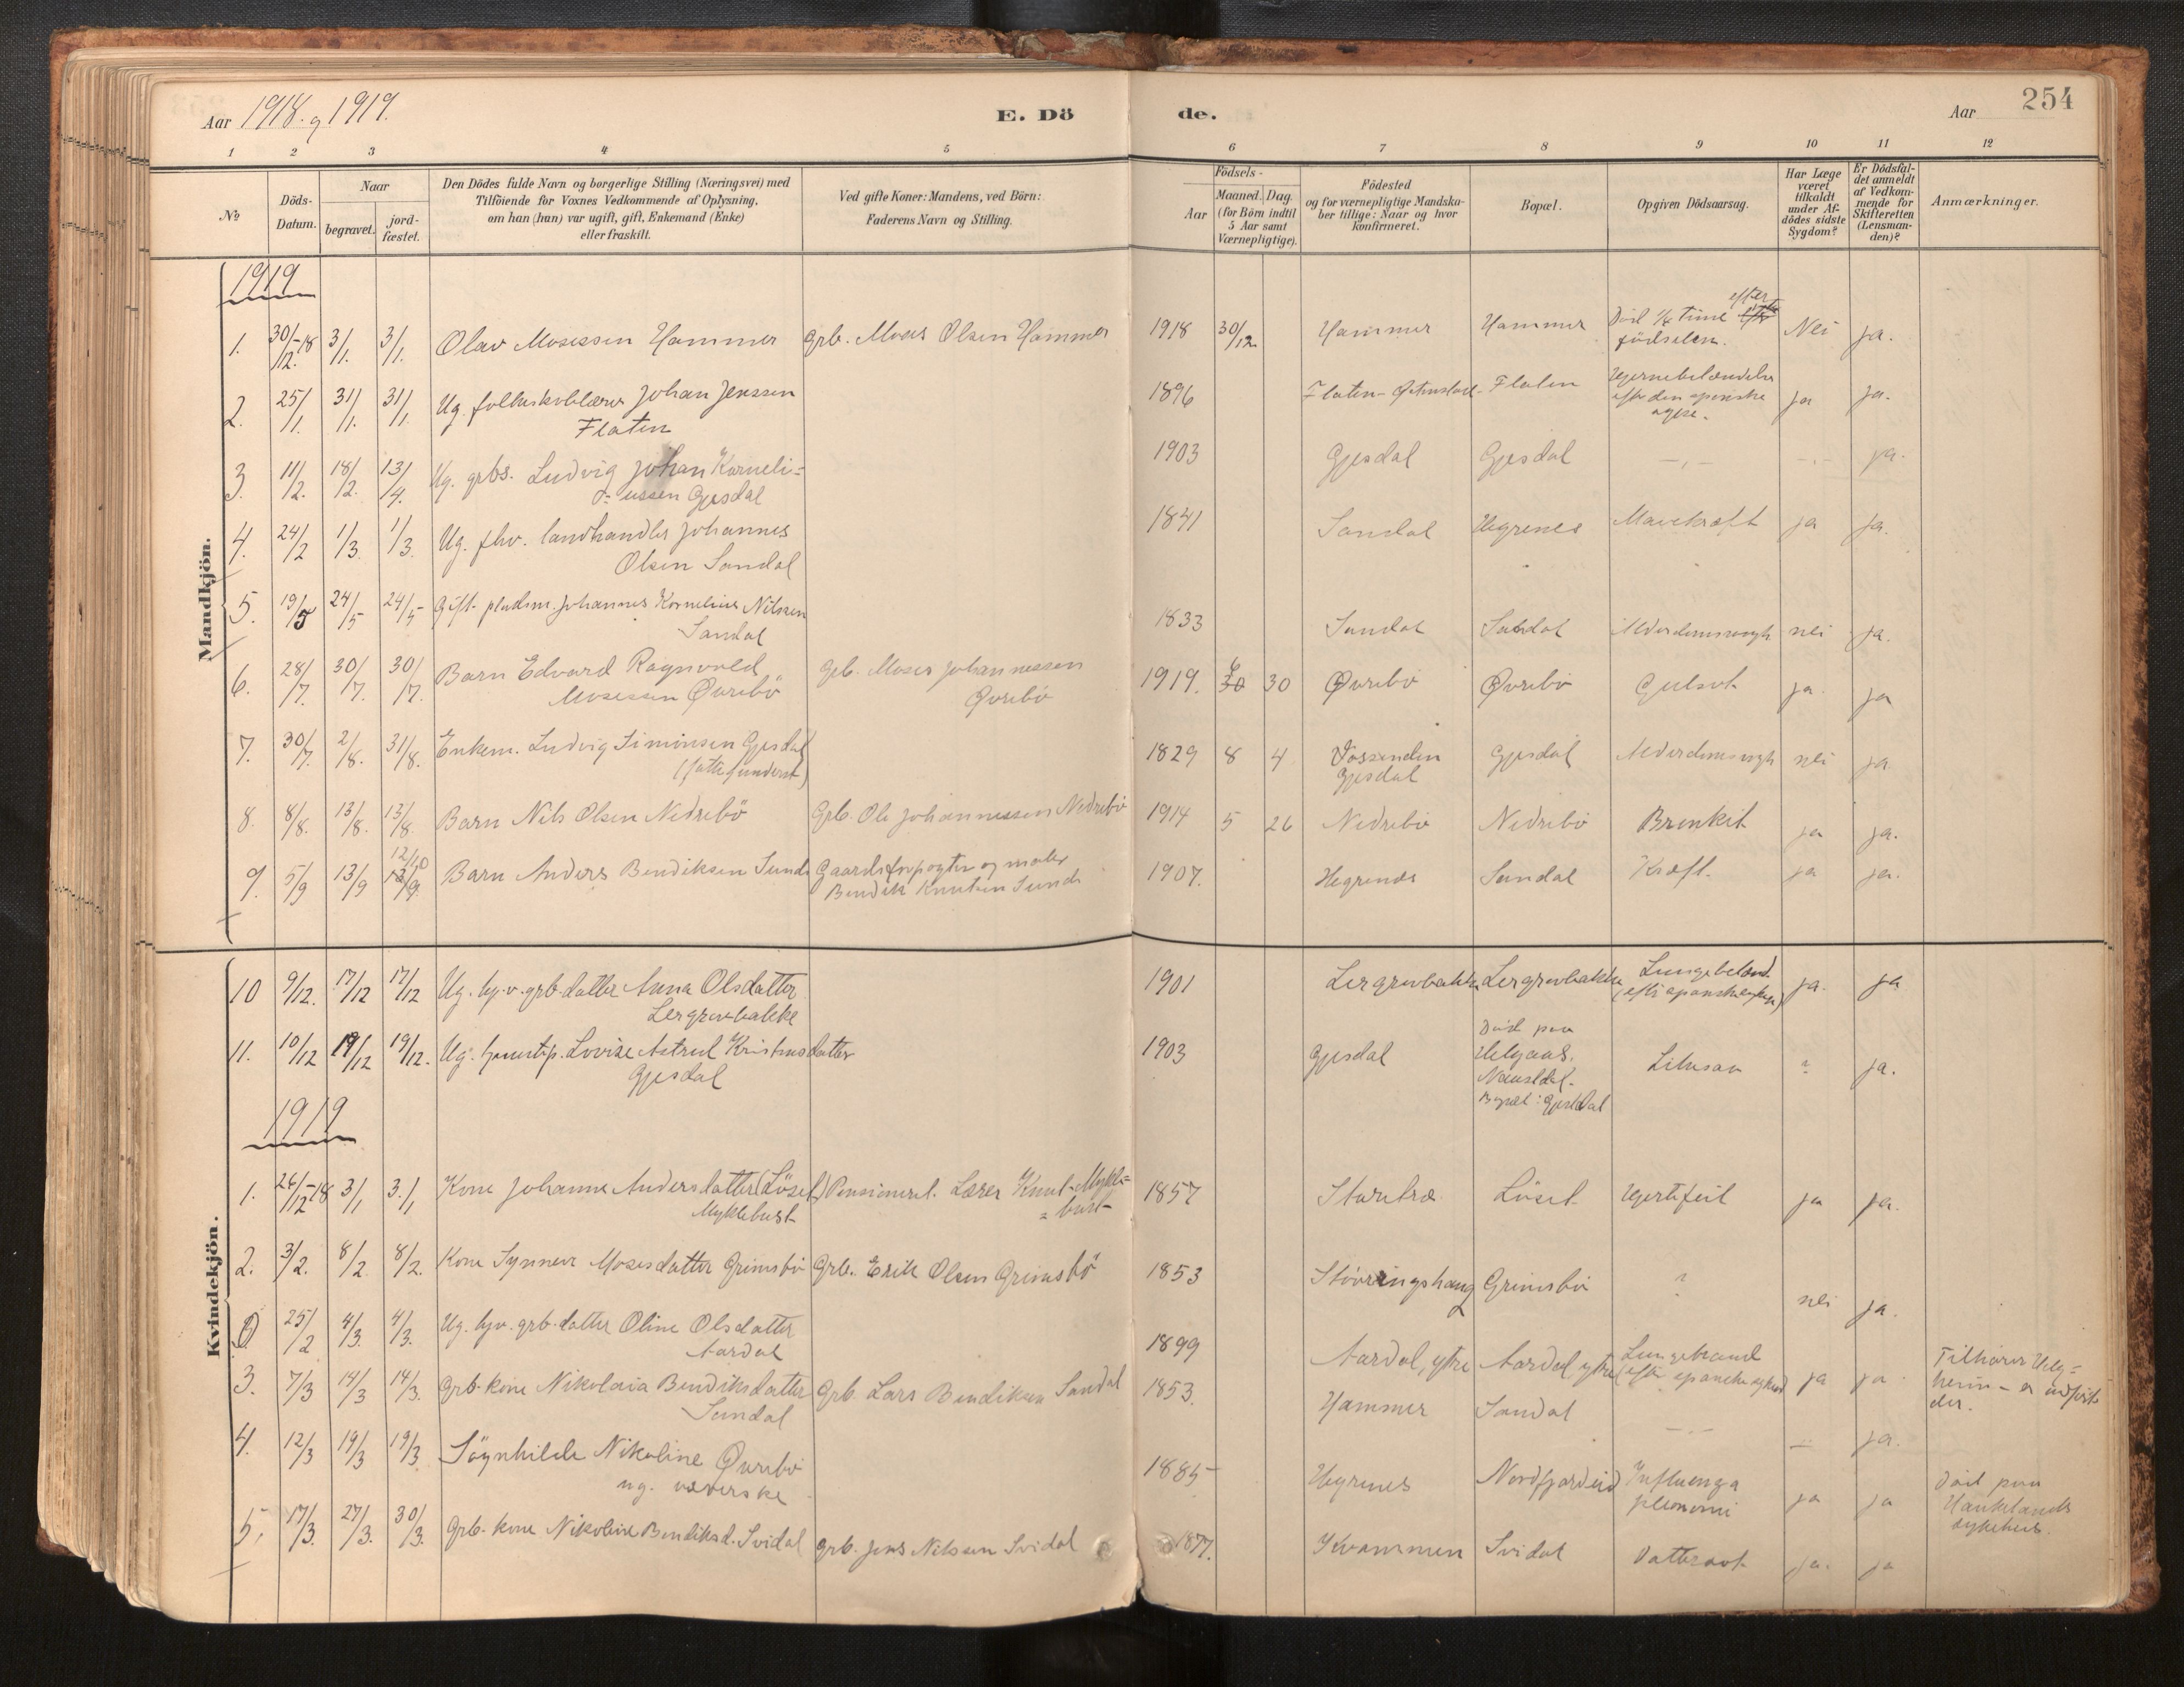 Aar 1918. og 1919. E. Dö de. Aar 254
1 2 3 4 5 6 7 8 9 10 11 12
No
Döds-Datum.
Naar
begravet.
jord-fæstet.
Den Dödes fulde Navn og borgerlige Stilling (Næringsvei) med
Tilföiende for Voxnes Vedkommende af Oplysning,
om han (hun) var ugift, gift, Enkemand (Enke)
eller fraskilt.
Ved gifte Koner: Mandens, ved Börn:
Faderens Navn og Stilling.
Födsels-
Aar
Maaned. Dag.
(for Börn indtil
5 Aar samt
Værnepligtige).
Födested
og for værnepligtige Mandska-
ber tillige: Naar og hvor
konfirmeret.
Bopæl.
Opgiven Dödsaarsag.
Har Læge
været
tilkaldt
under Af-
dödes sidste
Sygdom?
Er Dödsfal-
det anmeldt
af Vedkom-
mende for
Skifteretten
(Lensman-
den)?
Anmærkninger.
Mandkjön.
1919
1. 30/12-18 3/1. 3/1. Olav Mosessen Hammer Grb. Moses Olsen Hammer 1918 30/12 Hammer Hammer Död 1/4 time efter
födselen. Nei ja.
2. 25/1. 31/1. 31/1. Ug. folkeskolelærer Johan Jenssen
Flaten 1896 Flaten Flaten Hjernebetændelse
efter den spanske
syke. ja ja.
3. 11/2. 18/2. 13/4. Ug. grbs. Ludvig Johan Korneli=
ussen Gjesdal 1903 Gjesdal Gjesdal -,- -,- ja.
4. 24/2 1/3. 1/3. Ug. fhv. landhandler Johannes
Olsen Sandal 1841 Sandal Hegrenes Mavekræft ja ja.
5. 19/5 24/5 24/5 Gift. pladsm. Johannes Kornelius Nilssen
Sandal 1833 Sandal Sandal Alderdomssvagh nei ja.
6. 28/7. 30/7. 30/7. Barn Edvard Ragnvald
Mosessen Øvrebö Grb. Moses Johannessen
Øvrebö 1919. 6 30 Øvrebö Øvrebö Gulsot ja. ja
7. 30/7. 2/8. 31/8. Enkem. Ludvig Simonsen Gjesdal
(fattigunderst) 1829 8 4 Vossenden
Gjesdal Gjesdal Alderdomssvagh nei ja
8. 8/8. 13/8. 13/8. Barn Nils Olsen Nedrebö Grb. Ole Johannessen Nedrebö 1914 5 26 Nedrebö Nedrebö Bronkit ja ja.
9. 5/9 13/9 12/10 13/9. Barn Anders Bendiksen Sunde Gaardsforpagter og maler
Bendik Knutsen Sunde 1907. Hegrenes Sandal Kræft. ja ja.
Kvindekjön.
10 9/12. 17/12 17/12 Ug. hj.v. grb. datter Anna Olsdatter
Lergrovbakke 1901 Lergrovbakke Lergrovbakke Lungebetænd.
(efter spanskesyke) ja. ja
11. 10/12 19/12 19/12. Ug. tjenestep. Lovise Astrid Kristensdatter
Gjesdal 1903 Gjesdal Död paa
Helgaas.
Naustdal.
Bopæl: Gjesdal ? ja.
1919
1. 26/12-18 3/1 3./1 Kone Johanne Andersdatter (Löset)
Myklebust Pensioneret. Lærer Knut Mykle=
=bust 1857 Storebrø Löset Hjertefeil ja ja.
2. 3/2. 8/2 8/2. Kone Synneve Mosesdatter Grimsbö Grb. Erik Olsen Grimsbö 1853 Stövringshaug Grimsbö ? nei ja.
0 25/2 4/3. 4/3. Ug. hjv. grb. datter Oline Olsdatter
Aardal 1899 Aardal, ytre Aardal ytre Lungebrand
(efter spanske syken) ja ja Tilhører Helg=
heim - er indført
der.
3. 7/3 14/3 14/3. Grb. kone Nikolaia Bendiksdatter
Sandal Grb. Lars Bendiksen Sandal 1853. Hammer Sandal -,- - ja.
4. 12/3 19/3 19/3. Söynhilde Nikoline Øvrebö
ug. væverske 1885 Hegrenes Nordfjordeid Influenza
pleonomi ja ja Död paa
Hauklands
sykehus.
5. 17/3. 27/3. 30/3. Grb. kone Nikoline Bendiksd. Svidal Grb. Jens Nilssen Svidal 1877. Kvammen Svidal Vattersot ja. ja